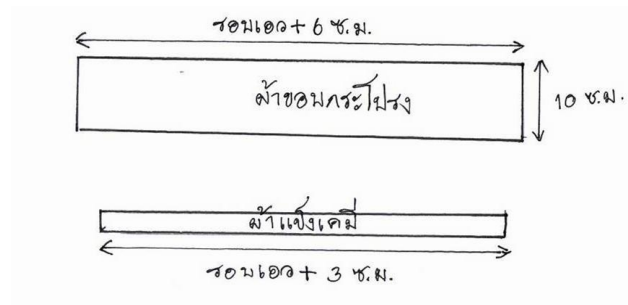 รอบเอว + 6 ซ.ม.
ผ้าขอบกระโปรง
10 ซ.ม.
ผ้าแข็งเคมี
รอบเอว + 3 ซ.ม.